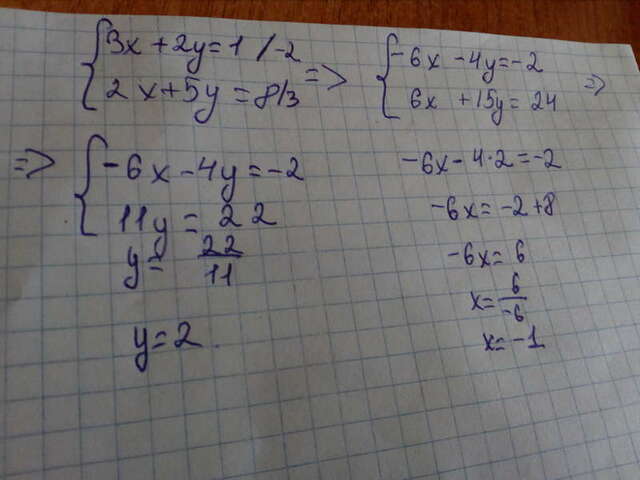 3x + 2y = 1 / -2
2x + 5y = 8 / 3
=>
-6x - 4y = -2
6x + 15y = 24
=>
=>
-6x - 4y = -2
11y = 22
y = 22/11
y = 2
-6x - 4·2 = -2
-6x = -2+8
-6x = 6
x = 6/-6
x = -1